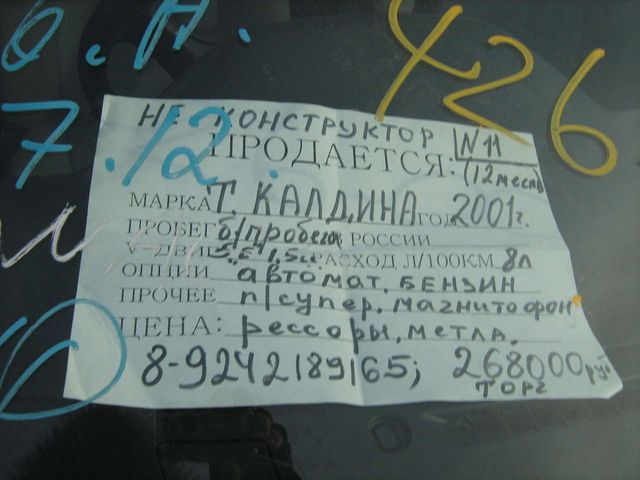 426
7.12.
НЕ КОНСТРУКТОР
ПРОДАЕТСЯ: N 11
(12 мест)
МАРКА Т. КАЛДИНА ГОД 2001г.
ПРОБЕГ б/пробега РОССИИ
V-ДВИГ 1,5 РАСХОД Л/100КМ 8л
ОПЦИИ автомат. БЕНЗИН
ПРОЧЕЕ п/супер. магнитофон
ЦЕНА: рессоры, метла.
8-9242189165; 268000 руб
ТОРГ